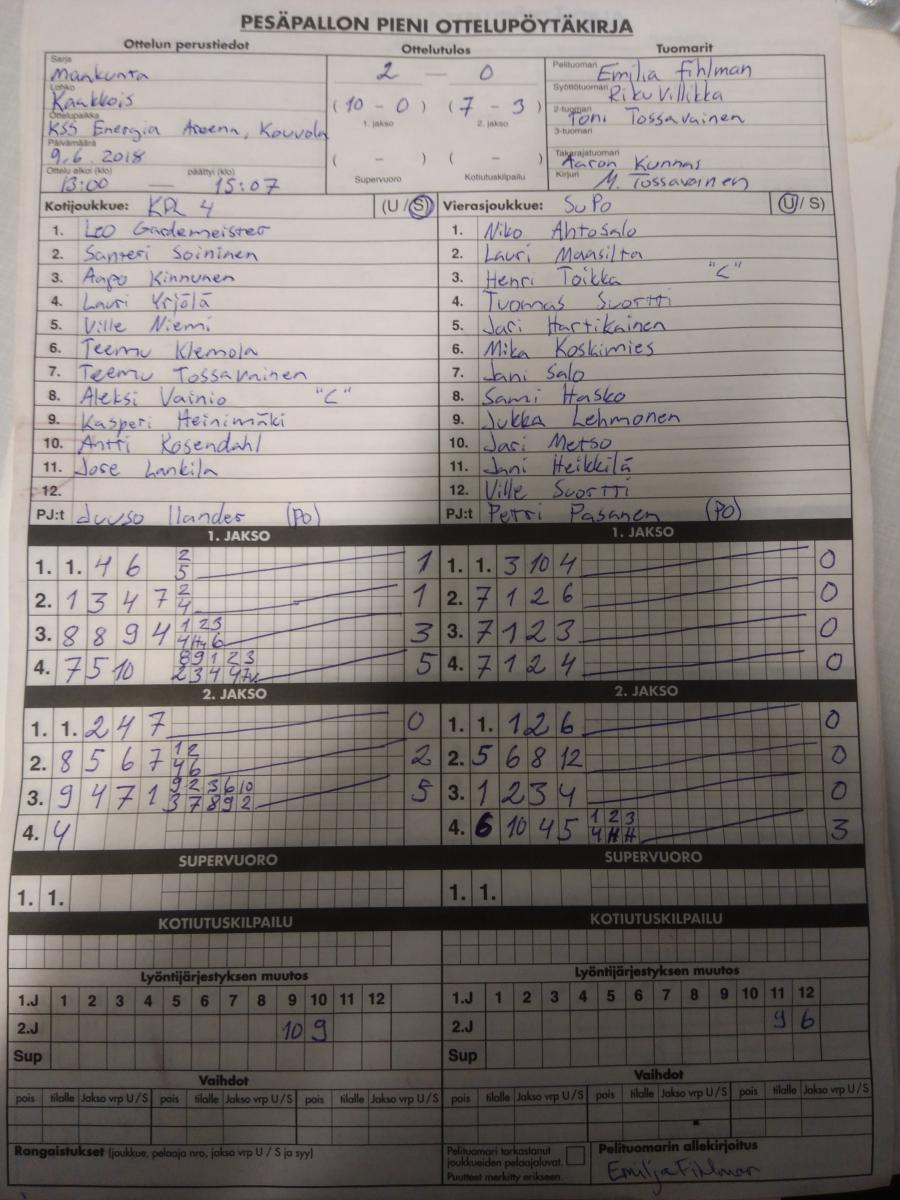 PESÄPALLON PIENI OTTELUPÖYTÄKIRJA
Ottelun perustiedot Ottelutulos Tuomarit
Sarja Maakunta
Lohko Kaakkois
Ottelupaikka KSS Energia Areena, Kouvola
Päivämäärä 9.6.2018
Ottelu alkoi (klo) 13:00 — päättyi (klo) 15:07
2 — 0
(10 - 0) (7 - 3)
1. jakso 2. jakso
( - ) ( - )
Supervuoro Kotiutuskilpailu
Pelituomari Emilia Fihlman
Syöttötuomari Riku Villikka
2-tuomari Toni Tossavainen
3-tuomari
Takarajatuomari Aaron Kunnas
Kirjuri M. Tossavainen
Kotijoukkue: KPL 4 (U / S) Vierasjoukkue: SuPo (U / S)
1. Leo Gardemeister 1. Niko Ahtosalo
2. Santeri Soininen 2. Lauri Maasilta
3. Aapo Kinnunen 3. Henri Toikka "C"
4. Lauri Yrjölä 4. Tuomas Suortti
5. Ville Niemi 5. Jari Hartikainen
6. Teemu Klemola 6. Mika Koskimies
7. Teemu Tossavainen 7. Jani Salo
8. Aleksi Vainio "C" 8. Sami Hasko
9. Kasperi Heinimäki 9. Jukka Lehmonen
10. Antti Rosendahl 10. Jari Metso
11. Jose Lankila 11. Jani Heikkilä
12. 12. Ville Suortti
PJ:t Juuso Ilander (PO) PJ:t Petri Pasanen (PO)
1. JAKSO 1. JAKSO
1. 1. 4 6 2 5 1 1. 1. 3 10 4 0
2. 1 3 4 7 2 4 1 2. 7 1 2 6 0
3. 8 8 9 4 1 2 3 4 6 3 3. 7 1 2 3 0
4. 7 5 10 8 9 1 2 3 2 3 4 4 5 4. 7 1 2 4 0
2. JAKSO 2. JAKSO
1. 1. 2 4 7 0 1. 1. 1 2 6 0
2. 8 5 6 7 1 2 4 6 2 2. 5 6 8 12 0
3. 9 4 7 1 9 2 3 6 10 3 7 8 9 2 5 3. 1 2 3 4 0
4. 4 4. 6 10 4 5 1 2 3 4 H H 3
SUPERVUORO SUPERVUORO
1. 1. 1. 1.
KOTIUTUSKILPAILU KOTIUTUSKILPAILU
Lyöntijärjestyksen muutos Lyöntijärjestyksen muutos
1.J 1 2 3 4 5 6 7 8 9 10 11 12 1.J 1 2 3 4 5 6 7 8 9 10 11 12
2.J 10 9 2.J 9 6
Sup Sup
Vaihdot Vaihdot
pois tilalle Jakso vrp U / S pois tilalle Jakso vrp U / S pois tilalle Jakso vrp U / S pois tilalle Jakso vrp U / S pois tilalle Jakso vrp U / S pois tilalle Jakso vrp U / S
Rangaistukset (joukkue, pelaaja nro, jakso vrp U / S ja syy)
Pelituomari tarkastanut
joukkueiden pelaajaluvat.
Puutteet merkitty erikseen.
Pelituomarin allekirjoitus
Emilia Fihlman